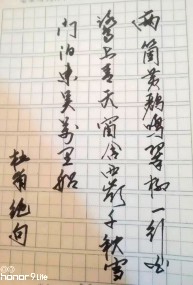 两箇黄鹂鸣翠柳一行白
鹭上青天窗含西岭千秋雪
门泊东吴万里船
杜甫绝句
honor9Lite